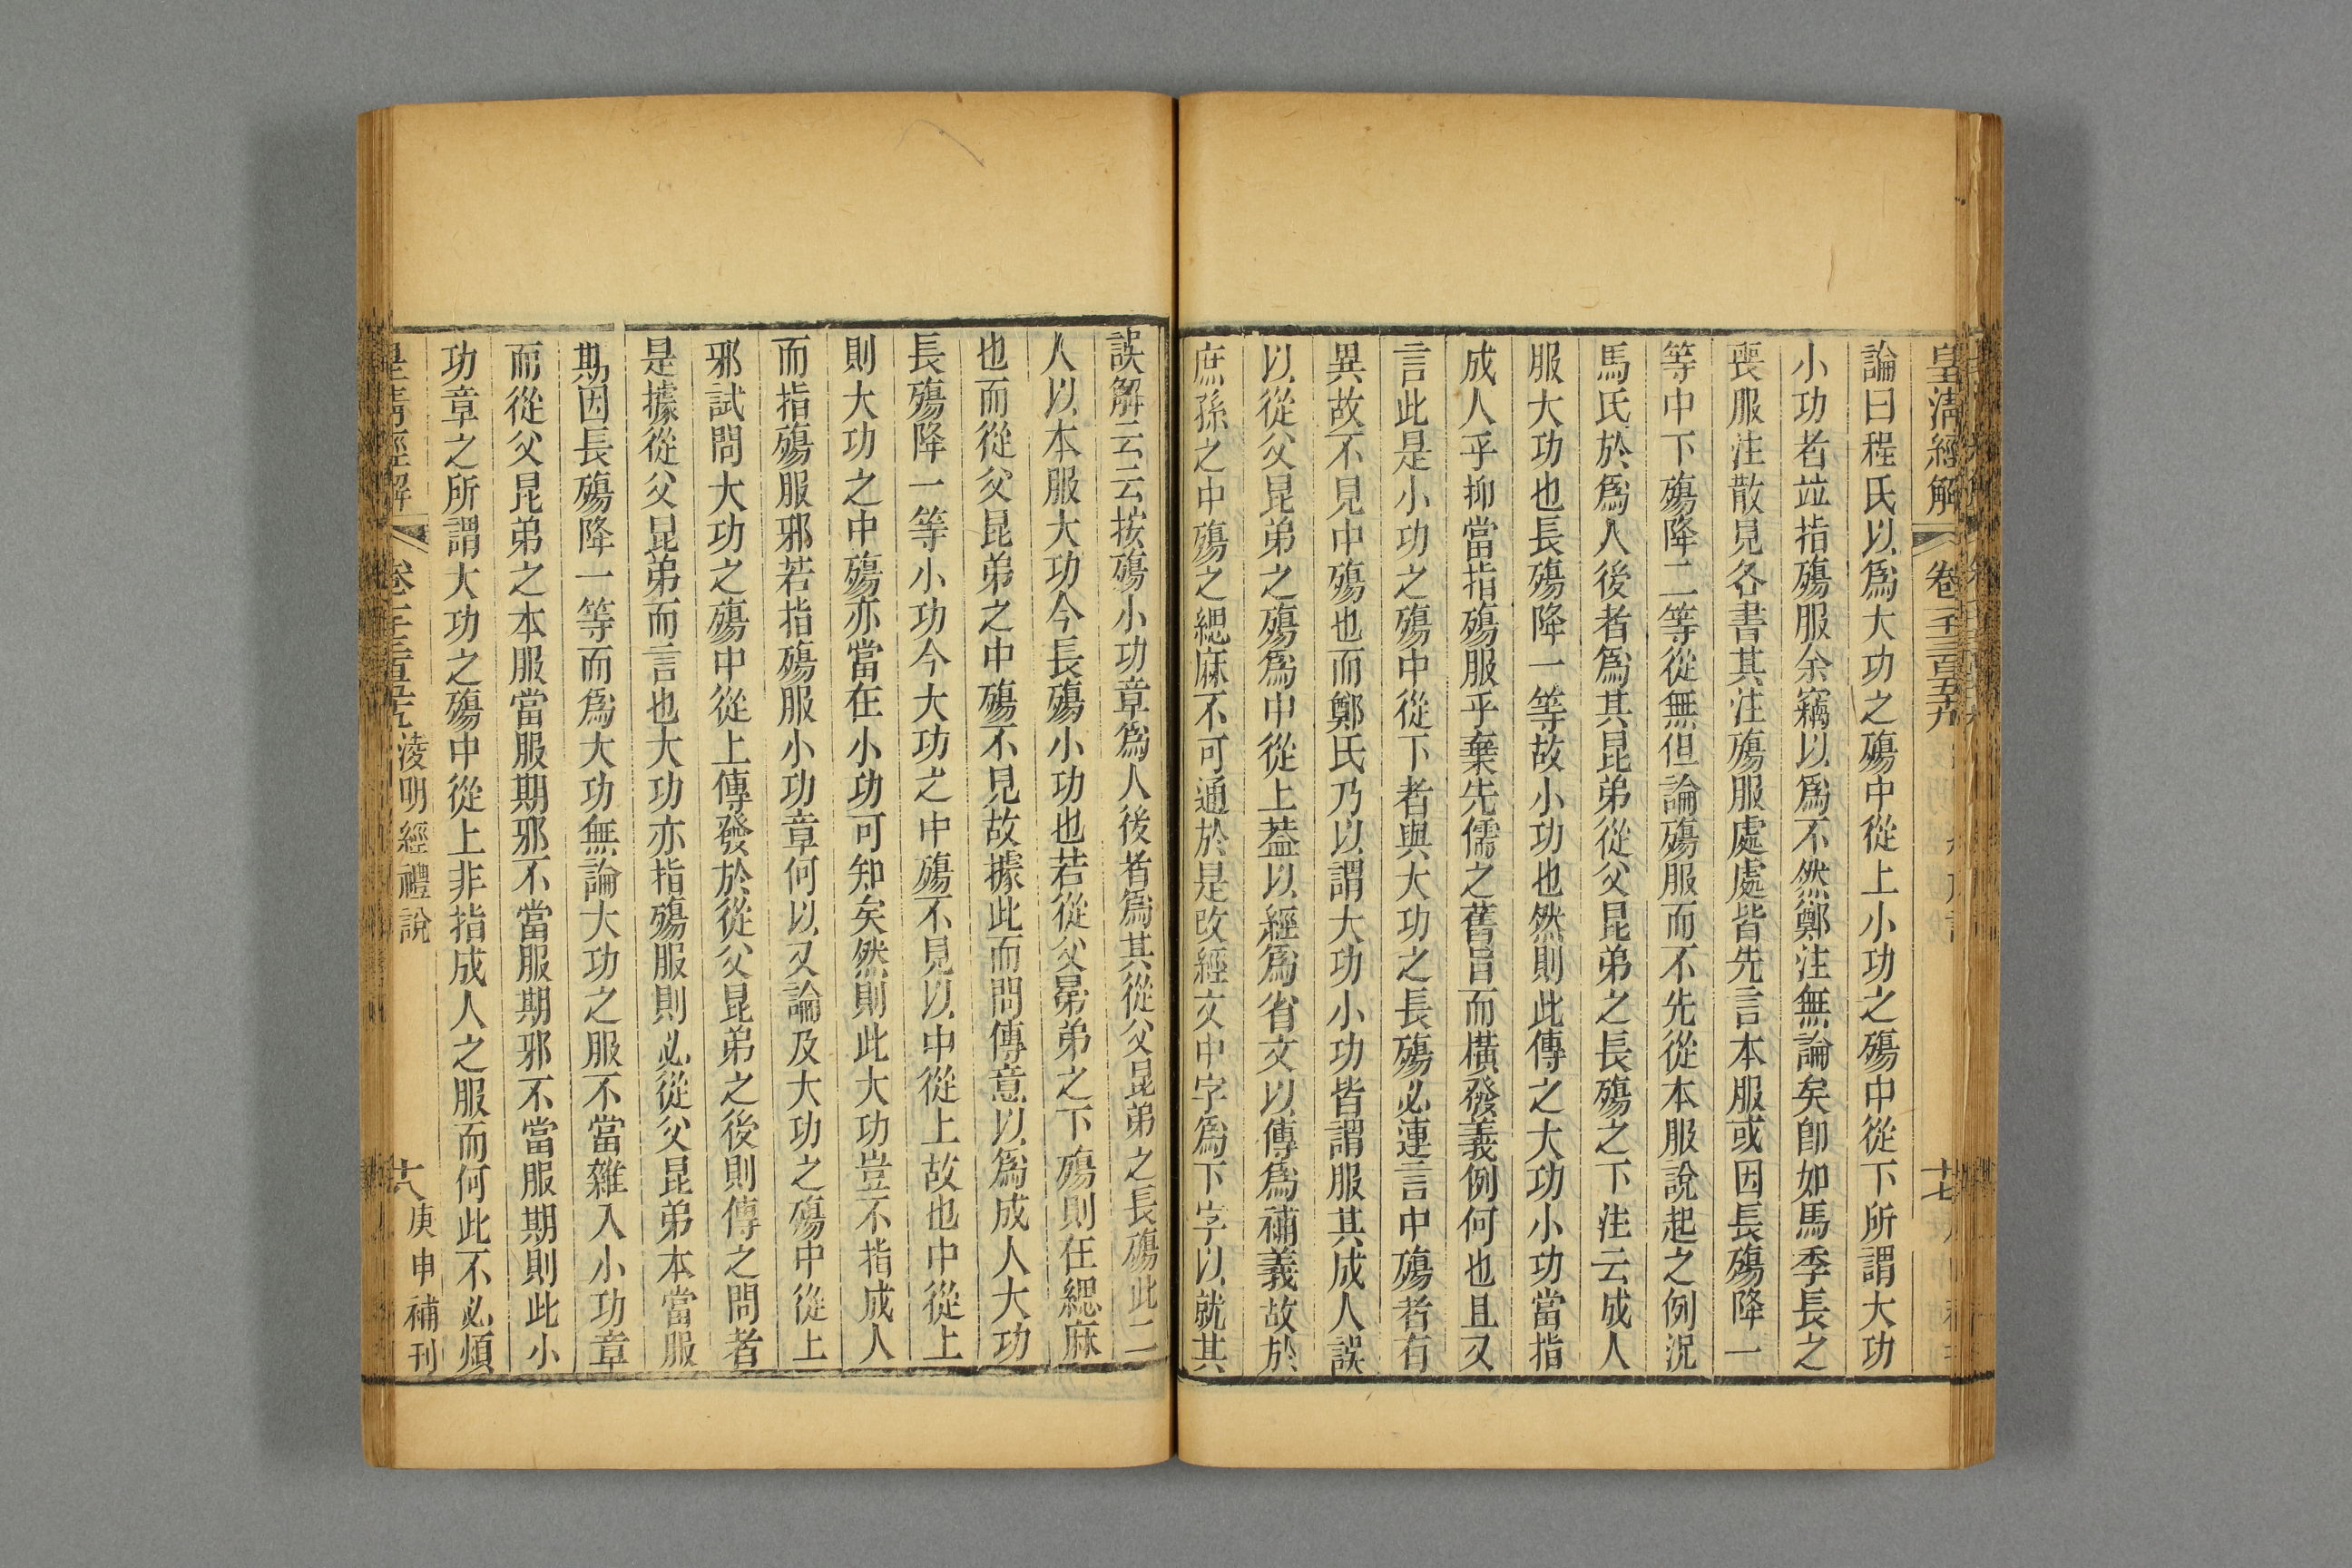 皇清經解 卷一千三百五十九 十七
論曰程氏以爲大功之殤中從上小功之殤中從下所謂大功
小功者竝指殤服余竊以爲不然鄭注無論矣卽如馬季長之
喪服注散見各書其注殤服處處皆先言本服或因長殤降一
等中下殤降二等從無但論殤服而不先從本服說起之例況
馬氏於爲人後者爲其昆弟從父昆弟之長殤之下注云成人
服大功也長殤降一等故小功也然則此傳之大功小功當指
成人乎抑當指殤服乎棄先儒之舊旨而橫發義例何也且又
言此是小功之殤中從下者與大功之長殤必連言中殤者有
異故不見中殤也而鄭氏乃以謂大功小功皆謂服其成人誤
以從父昆弟之殤爲中從上蓋以經爲省文以傳爲補義故於
庶孫之中殤之緦麻不可通於是改經文中字爲下字以就其
誤解云云按殤小功章爲人後者爲其從父昆弟之長殤此二
人以本服大功今長殤小功也若從父昆弟之下殤則在緦麻
也而從父昆弟之中殤不見故據此而問傳意以爲成人大功
長殤降一等小功今大功之中殤不見以中從上故也中從上
則大功之中殤亦當在小功可知矣然則此大功豈不指成人
而指殤服邪若指殤服小功章何以又論及大功之殤中從上
邪試問大功之殤中從上傳發於從父昆弟之後則傳之問者
是據從父昆弟而言也大功亦指殤服則必從父昆弟本當服
期因長殤降一等而爲大功無論大功之服不當雜入小功章
而從父昆弟之本服當服期邪不當服期邪不當服期則此小
功章之所謂大功之殤中從上非指成人之服而何此不必煩
皇清經解 卷一千三百五十九 淩明經禮說 十八 庚申補刊